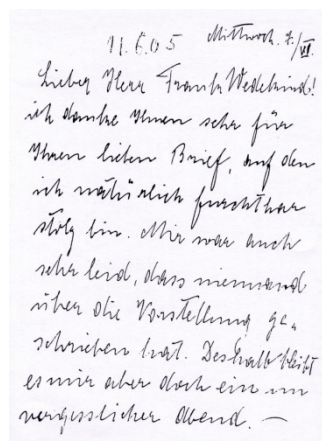 11.6.05 Mittwoch. 7./VI.
Lieber Herr Frank Wedekind!
ich danke Ihnen sehr für
Ihren lieben Brief, auf den
ich natürlich furchtbar
stolz bin. Mir war auch
sehr leid, dass niemand
über die Vorstellung ge-
schrieben hat. Deshalb bleibt
es mir aber doch ein un
vergesslicher Abend. —